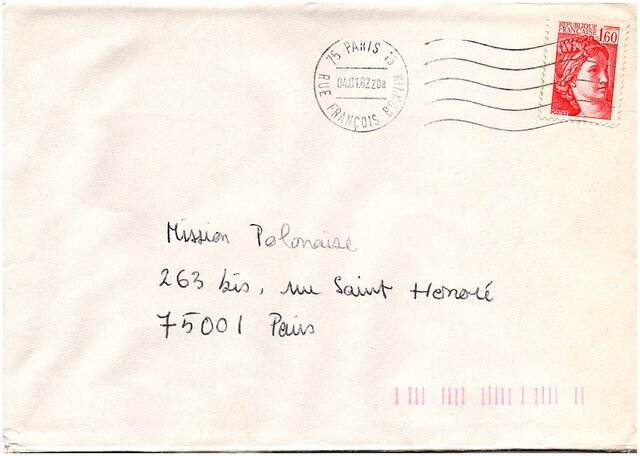 REPUBLIQUE
FRANÇAISE 1,60
POSTES
75 PARIS 15
04.01.82 20H
RUE FRANÇOIS BONVIN
Mission Polonaise
263 bis, rue Saint Honoré
75001 Paris